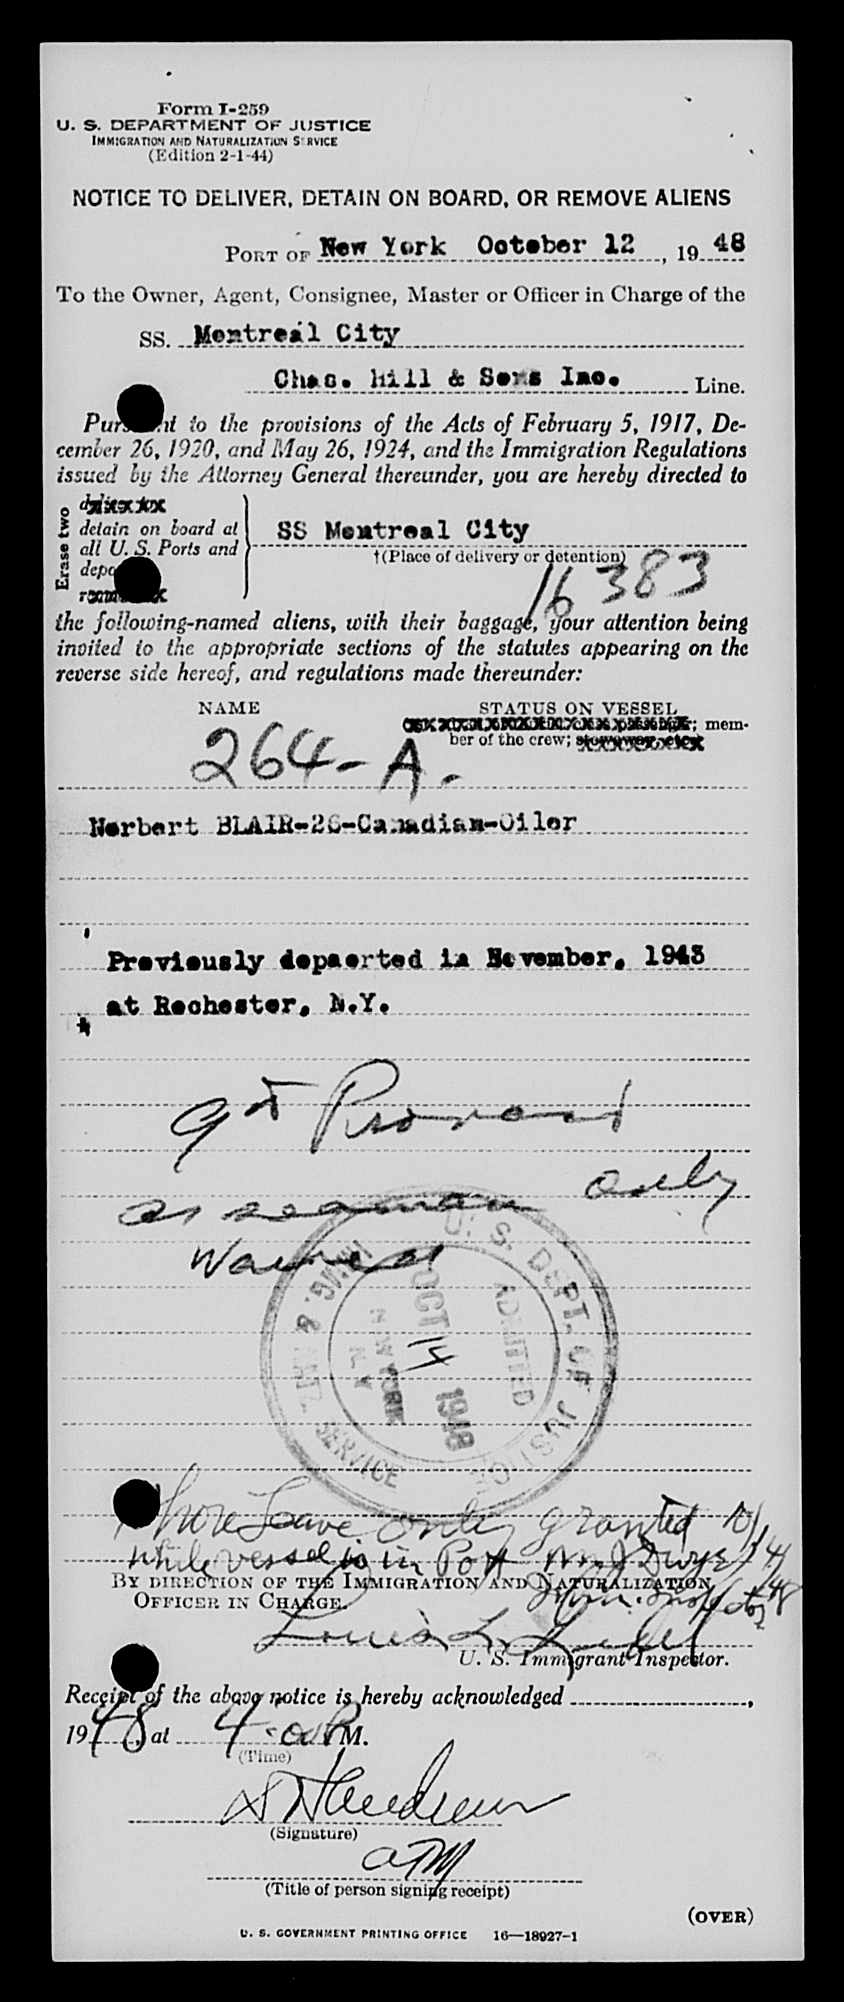 Form I-259
U. S. DEPARTMENT OF JUSTICE
IMMIGRATION AND NATURALIZATION SERVICE
(Edition 2-1-44)
NOTICE TO DELIVER, DETAIN ON BOARD, OR REMOVE ALIENS
PORT OF New York October 12, 19 48
To the Owner, Agent, Consignee, Master or Officer in Charge of the
SS. Montreal City
Chas. Hill & Sons Inc. Line.
Pursuant to the provisions of the Acts of February 5, 1917, De-
cember 26, 1920, and May 26, 1924, and the Immigration Regulations
issued by the Attorney General thereunder, you are hereby directed to
Erase two
detain on board at
all U. S. Ports and
SS Montreal City
†(Place of delivery or detention)
16383
the following-named aliens, with their baggage, your attention being
invited to the appropriate sections of the statutes appearing on the
reverse side hereof, and regulations made thereunder:
NAME STATUS ON VESSEL
passenger; mem-
ber of the crew;
264-A.
Norbert BLAIR-26-Canadian-Oiler
Previously depaorted in November, 1943
at Rochester, N.Y.
9th Proviso
as seaman only
Waived
U. S. DEPT. OF JUSTICE
IMMIG. & NATZ. SERVICE
ADMITTED
OCT 14 1948
NEW YORK
N.Y.
Shore Leave only granted 10/14/48
while vessel is in Port
BY DIRECTION OF THE IMMIGRATION AND NATURALIZATION
OFFICER IN CHARGE.
Immi. Inspector
Louis L.
U. S. Immigrant Inspector.
Receipt of the above notice is hereby acknowledged ,
1948, at 4:00 P M.
(Time)
(Signature)
(Title of person signing receipt)
(OVER)
U. S. GOVERNMENT PRINTING OFFICE 16—18927-1